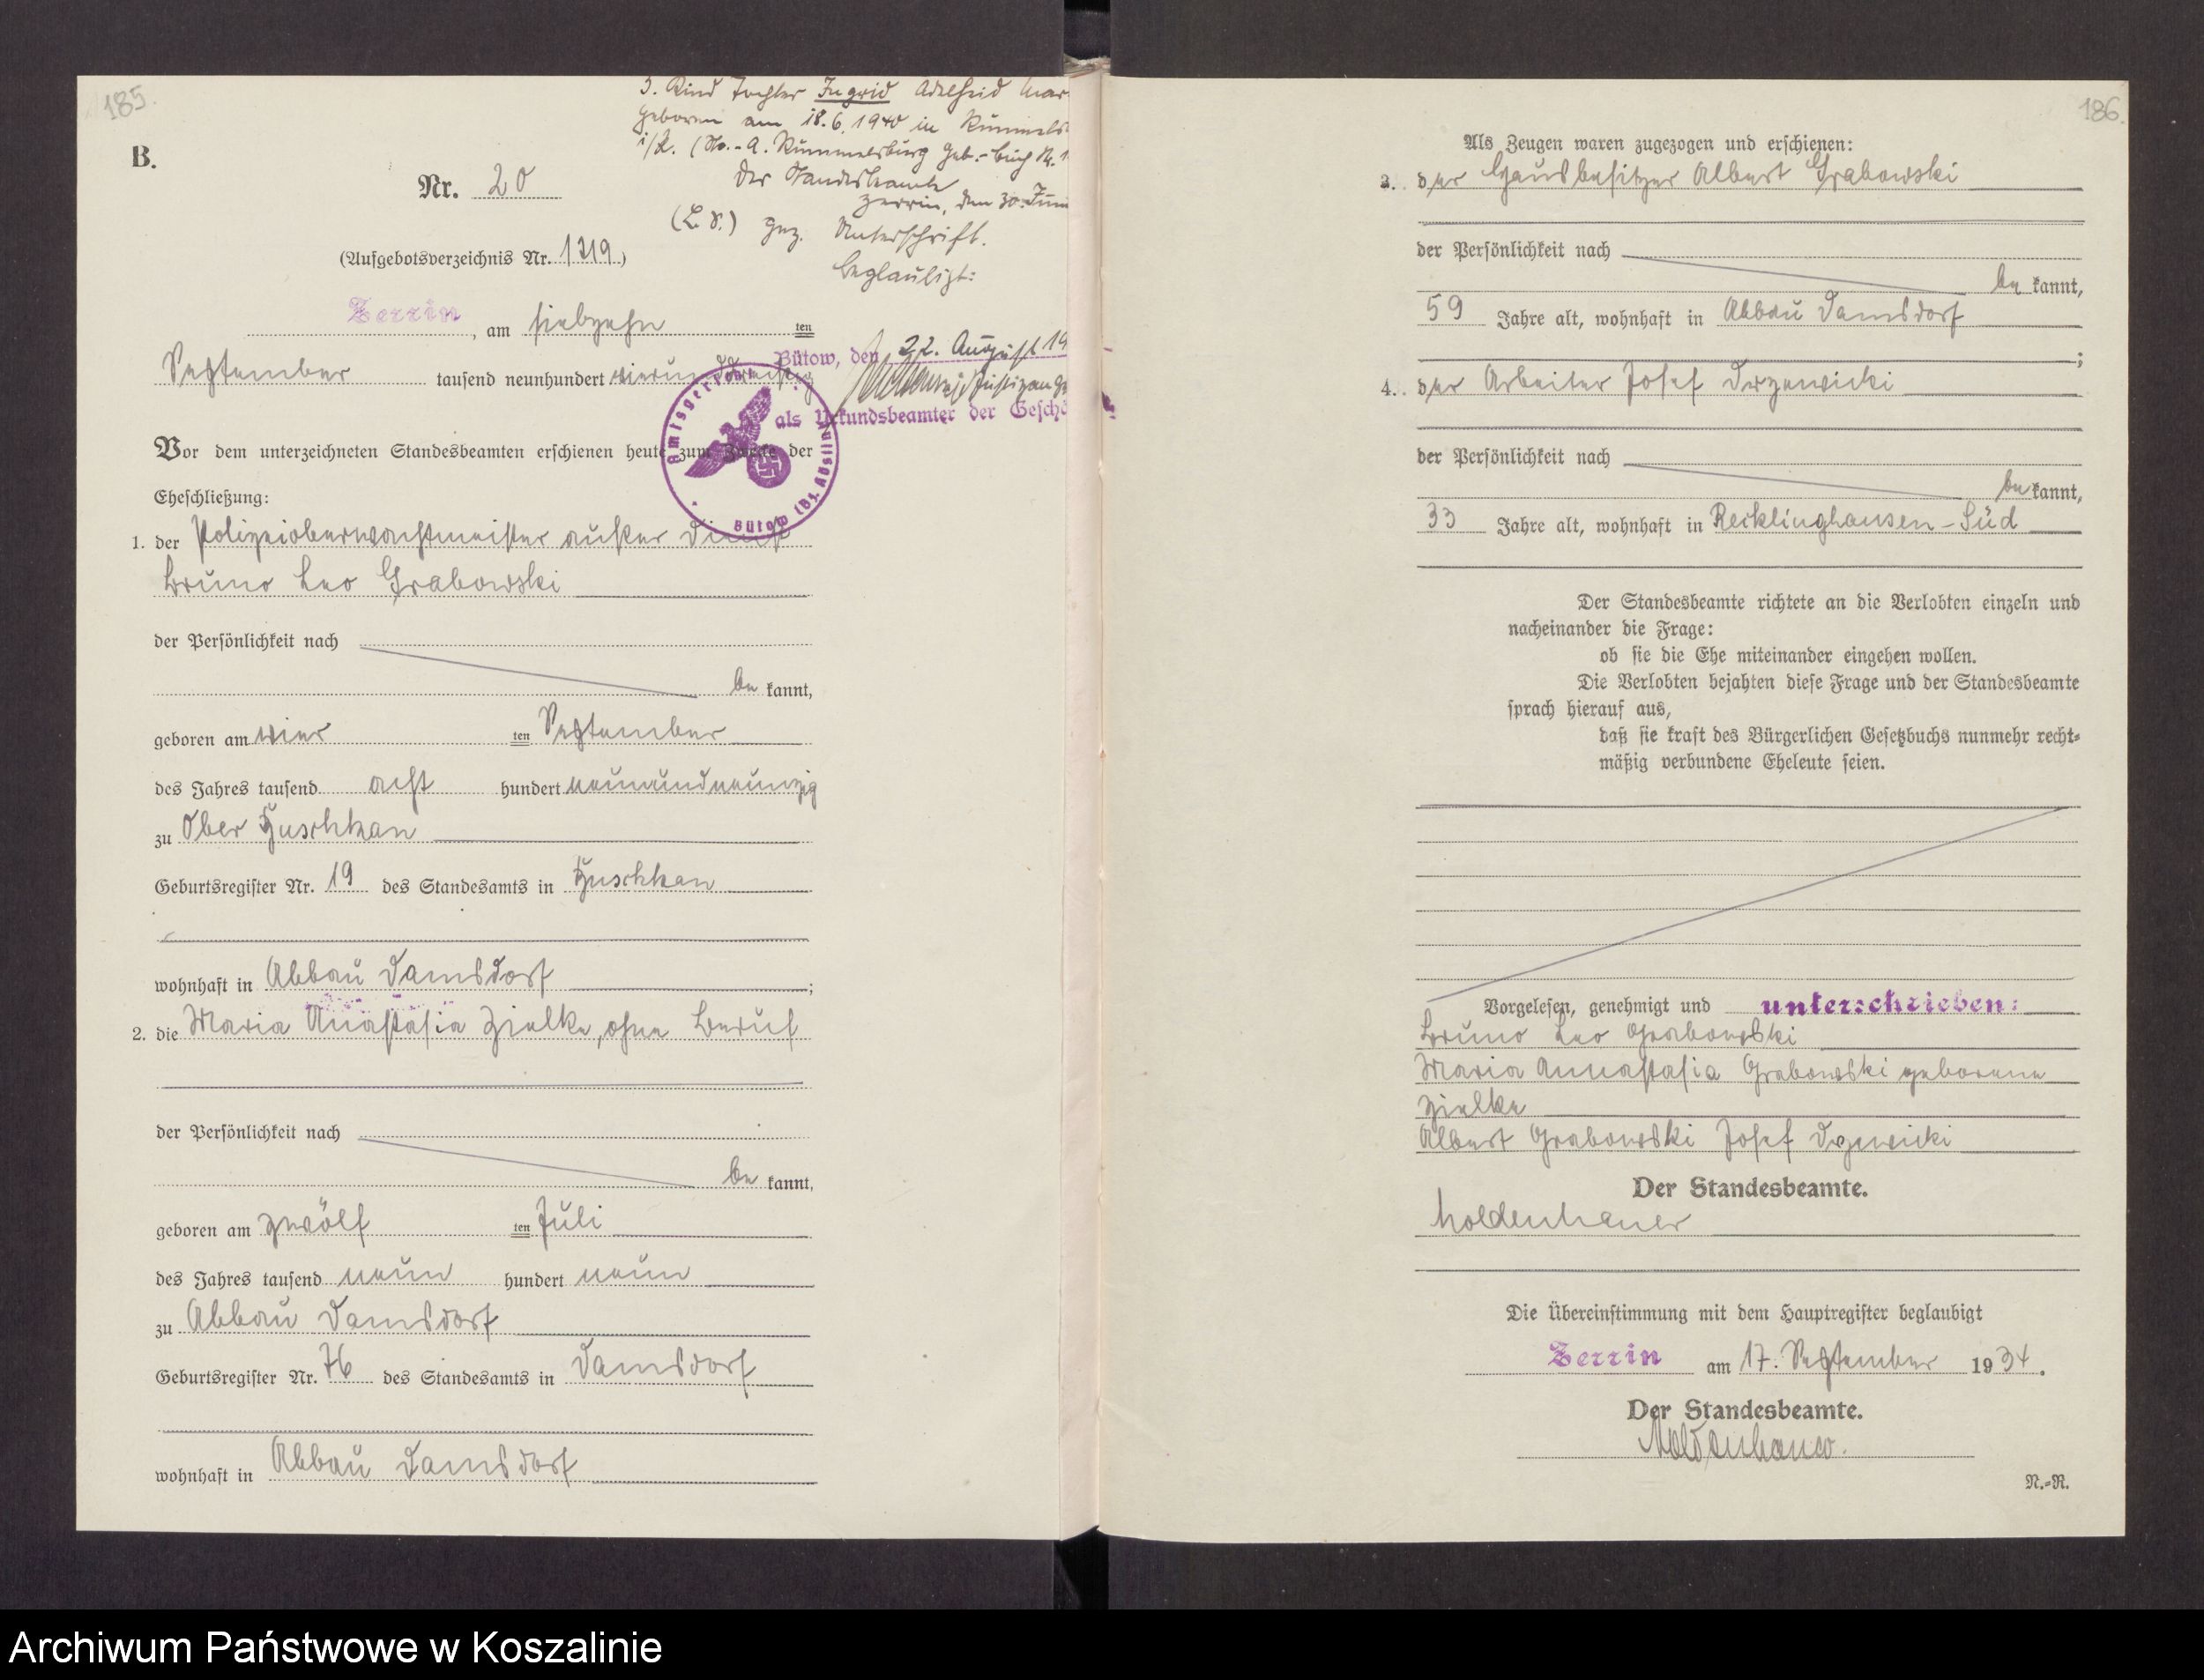 185.
B.
3. Kind Tochter Ingrid Adelheid Mar
geboren am 18.6.1940 in Rummels
i/P. (St.-A. Rummelsburg Geb.-Buch Nr. 1
Der Standesbeamte
Zerrin, den 30. Juni
(L.S.) gez. Unterschrift.
Beglaubigt:
Nr. 20
(Aufgebotsverzeichnis Nr. 1319)
Zerrin, am siebzehnten
Bütow, den 22. August 19
September tausend neunhundert vierunddreißig
Justizange
als Urkundsbeamter der Geschä
Amtsgericht Bütow (Bz. Köslin)
Vor dem unterzeichneten Standesbeamten erschienen heute zum Zwecke der
Eheschließung:
1. der Polizeioberwachtmeister außer Dienst
Bruno Leo Grabowski
der Persönlichkeit nach
be kannt,
geboren am vier ten September
des Jahres tausend acht hundert neunundneunzig
zu Ober Buschkau
Geburtsregister Nr. 19 des Standesamts in Buschkau
wohnhaft in Abbau Damsdorf;
2. die Maria Anastasia Zielke, ohne Beruf
der Persönlichkeit nach
be kannt,
geboren am zwölf ten Juli
des Jahres tausend neun hundert neun
zu Abbau Damsdorf
Geburtsregister Nr. 76 des Standesamts in Damsdorf
wohnhaft in Abbau Damsdorf
186.
Als Zeugen waren zugezogen und erschienen:
3. der Hausbesitzer Albert Grabowski
der Persönlichkeit nach
be kannt,
59 Jahre alt, wohnhaft in Abbau Damsdorf
;
4. der Arbeiter Josef Drzewicki
der Persönlichkeit nach
be kannt,
33 Jahre alt, wohnhaft in Recklinghausen-Süd
Der Standesbeamte richtete an die Verlobten einzeln und
nacheinander die Frage:
ob sie die Ehe miteinander eingehen wollen.
Die Verlobten bejahten diese Frage und der Standesbeamte
sprach hierauf aus,
daß sie kraft des Bürgerlichen Gesetzbuchs nunmehr recht-
mäßig verbundene Eheleute seien.
Vorgelesen, genehmigt und unterschrieben:
Bruno Leo Grabowski
Maria Annastasia Grabowski geborene
Zielke
Albert Grabowski Josef Drzewicki
Der Standesbeamte.
Moldenhauer
Die Übereinstimmung mit dem Hauptregister beglaubigt
Zerrin am 17. September 1934.
Der Standesbeamte.
Moldenhauer.
N.-R.
Archiwum Państwowe w Koszalinie